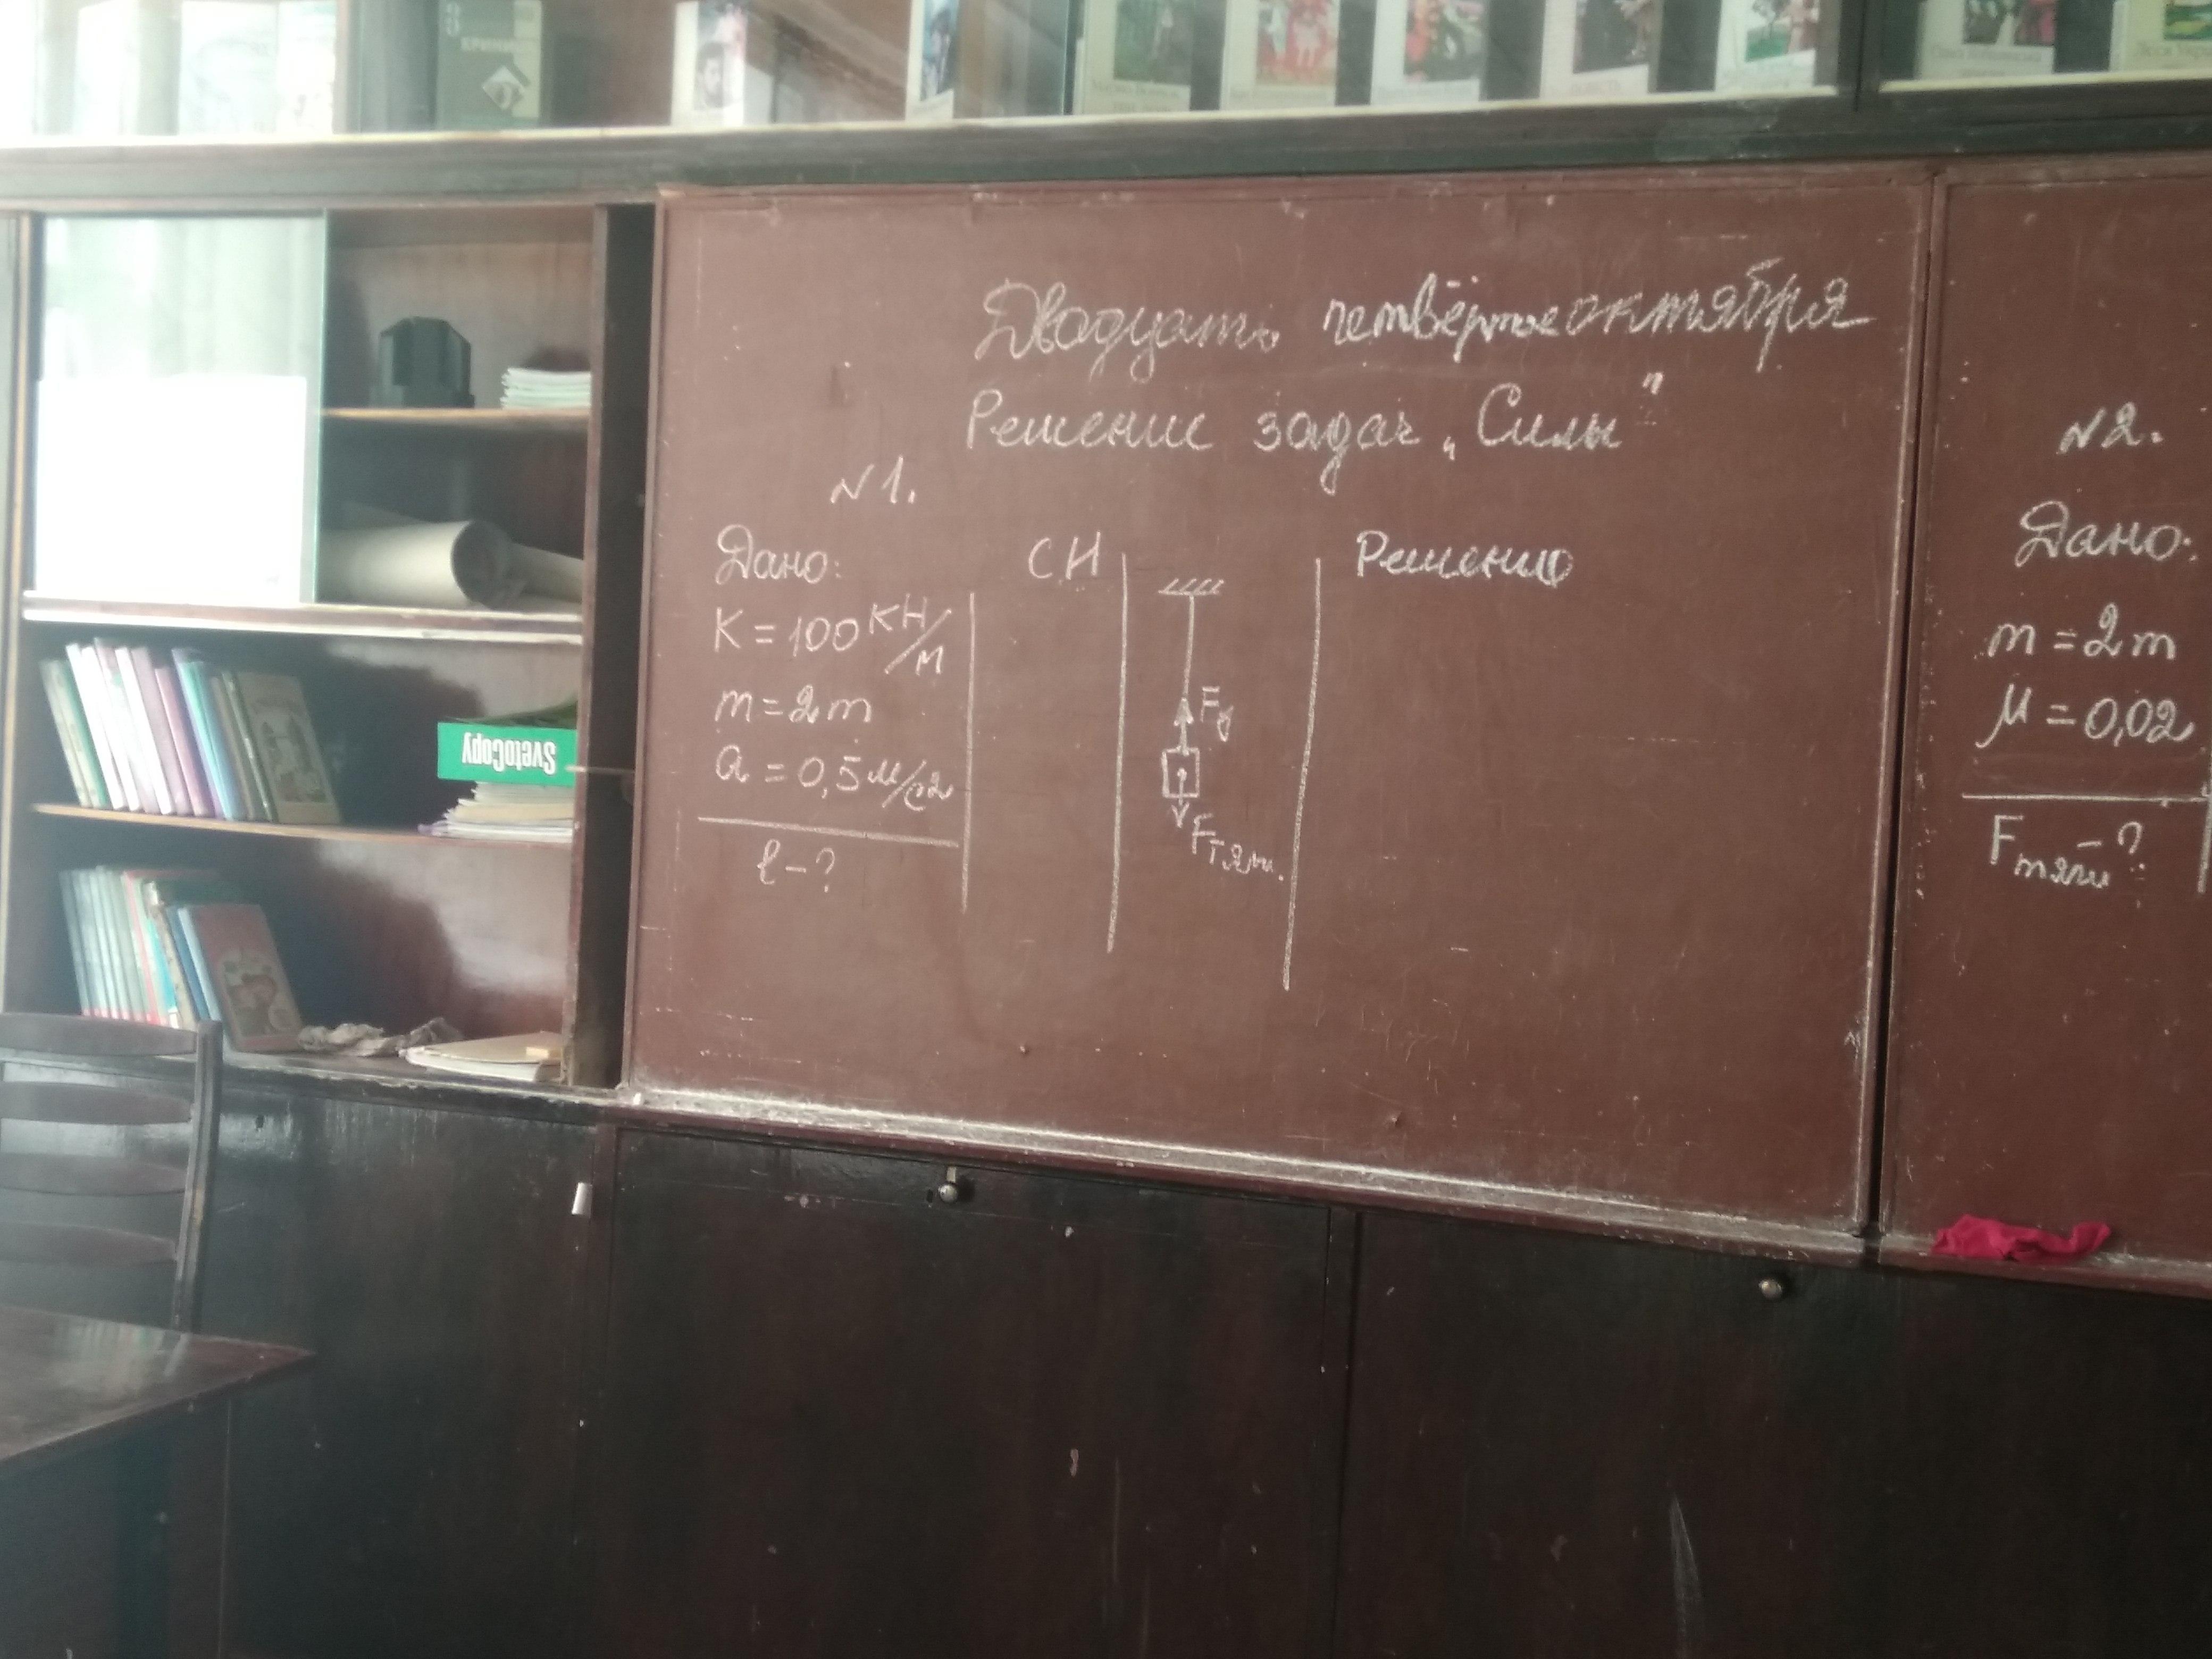 Двадцать четвёртое октября
Решение задач „Силы"
N1.
Дано:
K = 100 кН/м
m = 2 т
a = 0,5 м/с2
l - ?
СИ
Fу
Fтяж.
Решение
N2.
Дано:
m = 2 т
μ = 0,02
Fтяги - ?
SvetoCopy